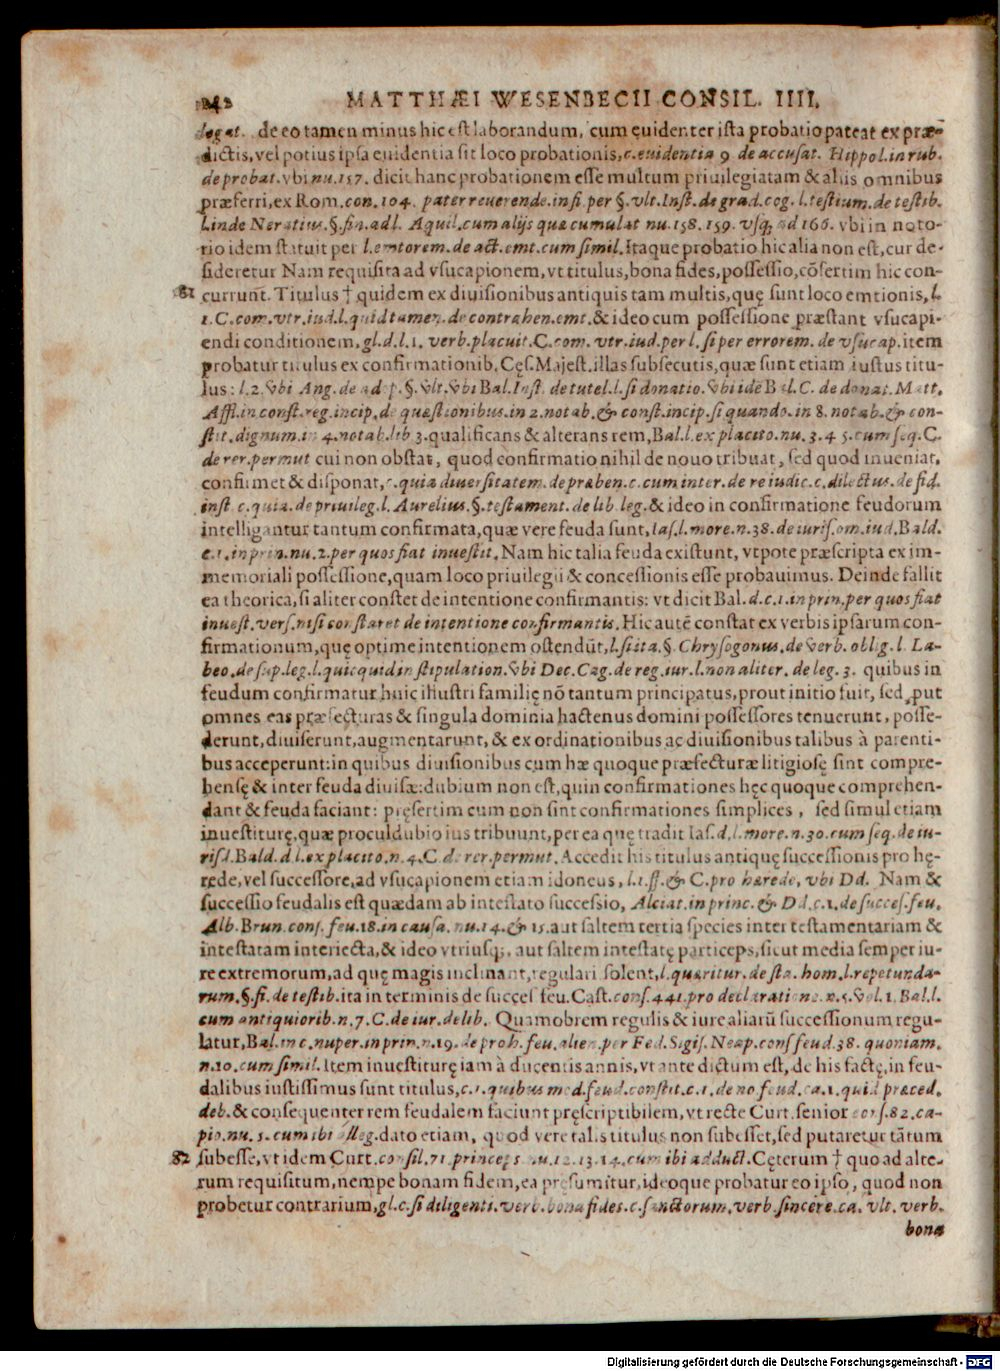 242 MATTHÆI WESENBECII CONSIL. IIII.
legat. de eo tamen minus hic est laborandum, cum euidenter ista probatio pateat ex præ-
dictis, vel potius ipsa euidentia sit loco probationis, c. euidentia 9 de accusat. Hippol. in rub.
de probat. vbi nu. 157. dicit hanc probationem esse multum priuilegiatam & aliis omnibus
præferri, ex Rom. con. 104. pater reuerende. in fi. per §. vlt. Inst. de grad. cog. l. testium. de testib.
l. inde Neratius. §. fin. ad l. Aquil. cum alijs quæ cumulat nu. 158. 159. vsq; ad 166. vbi in noto-
rio idem statuit per l. emtorem. de act. emt. cum simil. Itaque probatio hic alia non est, cur de-
sideretur Nam requisita ad vsucapionem, vt titulus, bona fides, possessio, cōsertim hic con-
81 currunt. Titulus † quidem ex diuisionibus antiquis tam multis, quę sunt loco emtionis, l.
1. C. com. vtr. iud. l. quid tamen. de contrahen. emt. & ideo cum possessione præstant vsucapi-
endi conditionem, gl. d. l. 1. verb. placuit. C. com. vtr. iud. per l. si per errorem. de vsucap. item
probatur titulus ex confirmationib. Cęs. Majest. illas subsecutis, quæ sunt etiam iustus titu-
lus: l. 2. vbi Ang. de adop. §. vlt. vbi Bal. Inst. de tutel. l. si donatio. vbi idē Bal. C. de donat. Matt.
Affl. in const. reg. incip. de quæstionibus. in 2. notab. & const. incip. si quando. in 8. notab. & con-
stit. dignum. in 4. notab. lib 3. qualificans & alterans rem, Bal. l. ex placito. nu. 3. 4 5. cum seq. C.
de rer. permut cui non obstat, quod confirmatio nihil de nouo tribuat, sed quod inueniat,
confirmet & disponat, c. quia diuersitatem. de præben. c. cum inter. de re iudic. c. dilectus. de fid.
inst. c. quia. de priuileg. l. Aurelius. §. testament. de lib. leg. & ideo in confirmatione feudorum
intelligantur tantum confirmata, quæ vere feuda sunt, Ias. l. more. n. 38. de iuris. om. iud. Bald.
c. 1. in prin. nu. 2. per quos fiat inuestit. Nam hic talia feuda existunt, vtpote præscripta ex im-
memoriali possessione, quam loco priuilegii & concessionis esse probauimus. Deinde fallit
ea theorica, si aliter constet de intentione confirmantis: vt dicit Bal. d. c. 1. in prin. per quos fiat
inuest. vers. nisi constaret de intentione confirmantis. Hic autē constat ex verbis ipsarum con-
firmationum, quę optime intentionem ostendūt, l. si ita. §. Chrysogonus. de verb. oblig. l. La-
beo. de sup. leg. l. quicquid in stipulation. vbi Dec. Cag. de reg. iur. l. non aliter. de leg. 3. quibus in
feudum confirmatur huic illustri familię nō tantum principatus, prout initio fuit, sed ,put
omnes eas præfecturas & singula dominia hactenus domini possessores tenuerunt, posse-
derunt, diuiserunt, augmentarunt, & ex ordinationibus ac diuisionibus talibus à parenti-
bus acceperunt: in quibus diuisionibus cum hæ quoque præfecturæ litigiosę sint compre-
hensę & inter feuda diuisæ: dubium non est, quin confirmationes hęc quoque comprehen-
dant & feuda faciant: pręsertim cum non sint confirmationes simplices, sed simul etiam
inuestiturę, quæ proculdubio ius tribuunt, per ea quę tradit Ias. d. l. more. n. 30. cum seq. de iu-
risd. Bald. d. l. ex placito. n. 4. C. de rer. permut. Accedit his titulus antiquę successionis pro hę-
rede, vel successore, ad vsucapionem etiam idoneus, l. 1. ff. & C. pro hærede, vbi Dd. Nam &
successio feudalis est quædam ab intestato successio, Alciat. in princ. & Dd. c. 1. de succes. feu.
Alb. Brun. cons. feu. 18. in causa. nu. 14. & 15. aut saltem tertia species inter testamentariam &
intestatam interiecta, & ideo vtriusq;, aut saltem intestatę particeps, sicut media semper iu-
re extremorum, ad quę magis inclinant, regulari solent, l. quæritur. de sta. hom. l. repetunda-
rum. §. fi. de testib. ita in terminis de succes feu. Cast. cons. 441. pro declaratione. n. 5. vol. 1. Bal. l.
cum antiquiorib. n. 7. C. de iur. delib. Quamobrem regulis & iure aliarū successionum regu-
latur, Bal. in c. nuper. in prin. n. 19. de proh. feu. alien. per Fed. Sigis. Neap. cons feud. 38. quoniam.
n. 10. cum simil. Item inuestiturę iam à ducentis annis, vt ante dictum est, de his factę, in feu-
dalibus iustissimus sunt titulus, c. 1. quibus mod. feud. constit. c. 1. de no feud. ca. 1. quid præced.
deb. & consequenter rem feudalem faciunt pręscriptibilem, vt recte Curt. senior cons. 82. ca-
pio. nu. 5. cum ibi alleg. dato etiam, quod vere talis titulus non subesset, sed putaretur tātum
82 subesse, vt idem Curt. consil. 71. princeps nu. 12. 13. 14. cum ibi adduct. Cęterum † quo ad alte-
rum requisitum, nempe bonam fidem, ea pręsumitur, ideoque probatur eo ipso, quod non
probetur contrarium, gl. c. si diligenti. verb. bona fides. c. sanctorum. verb. sincere. ca. vlt. verb.
bona
Digitalisierung gefördert durch die Deutsche Forschungsgemeinschaft - DFG